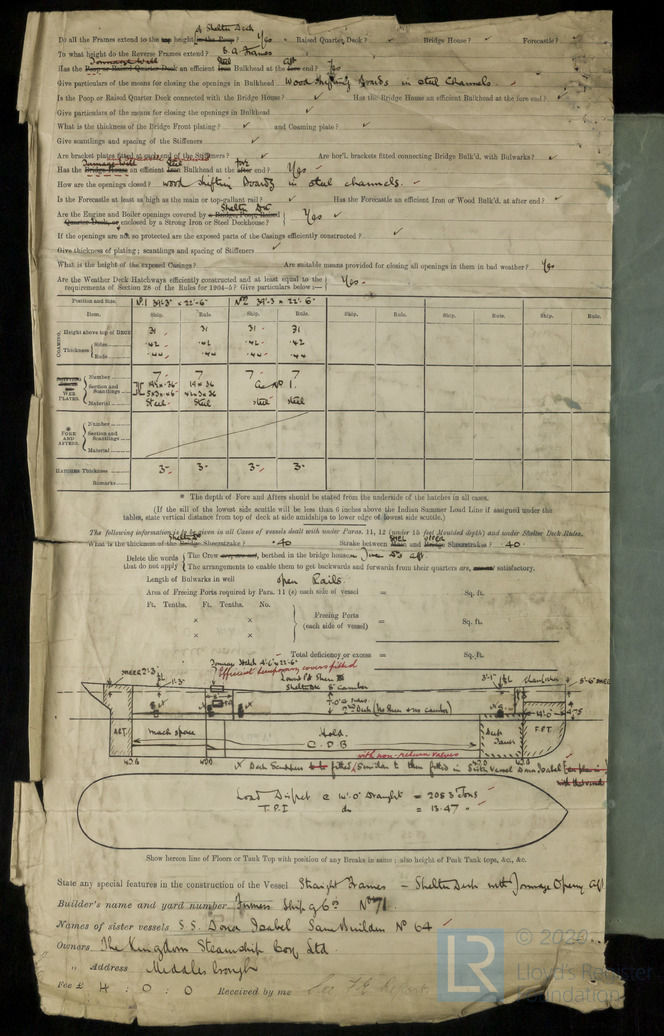 A Shelter Deck
Do all the Frames extend to the top height in the Poop? Yes Raised Quarter Deck? ✓ Bridge House? ✓ Forecastle? ✓
To what height do the Reverse Frames extend? B.A. Frames
Tonnage Well Steel Aft
Has the Poop or Raised Quarter Deck an efficient Iron Bulkhead at the fore end? Yes
Give particulars of the means for closing the openings in Bulkhead Wood shifting Boards in steel Channels.
Is the Poop or Raised Quarter Deck connected with the Bridge House? ✓ Has the Bridge House an efficient Bulkhead at the fore end? ✓
Give particulars of the means for closing the openings in Bulkhead ✓
What is the thickness of the Bridge Front plating? ✓ and Coaming plate? ✓
Give scantlings and spacing of the Stiffeners ✓
Are bracket plates fitted at each end of the Stiffeners? ✓ Are hor'l. brackets fitted connecting Bridge Bulk'd. with Bulwarks? ✓
Tonnage Well Steel fore
Has the Bridge House an efficient Iron Bulkhead at the after end? Yes
How are the openings closed? wood shifting Boards in steel channels.
Is the Forecastle at least as high as the main or top-gallant rail? ✓ Has the Forecastle an efficient Iron or Wood Bulk'd. at after end? ✓
Shelter Dk
Are the Engine and Boiler openings covered by a Bridge, Poop, Raised
Quarter Deck, or enclosed by a Strong Iron or Steel Deckhouse? Yes ✓
If the openings are not so protected are the exposed parts of the Casings efficiently constructed? ✓
Give thickness of plating; scantlings and spacing of Stiffeners ✓
What is the height of the exposed Casings? Are suitable means provided for closing all openings in them in bad weather? Yes
Are the Weather Deck Hatchways efficiently constructed and at least equal to the
requirements of Section 28 of the Rules for 1904-5? Give particulars below :— Yes.
Position and Size. No 1 39'·3" × 22'·6" No 2 39'·3 × 22'·6"
Item. Ship. Rule. Ship. Rule. Ship. Rule. Ship. Rule. Ship. Rule.
COAMING. Height above top of DECK 31 31 31 31
Thickness Sides ·42 ·42 ·42 ·42
Ends ·44 ·44 ·44 ·44
WEB PLATES. Number 7 7 7 7
Section and Scantlings
Material Steel Steel Steel Steel
* FORE AND AFTERS. Number
Section and Scantlings
Material
HATCHES Thickness 3" 3" 3" 3"
Remarks
* The depth of Fore and Afters should be stated from the underside of the hatches in all cases.
(If the sill of the lowest side scuttle will be less than 6 inches above the Indian Summer Load Line if assigned under the
tables, state vertical distance from top of deck at side amidships to lower edge of lowest side scuttle.)
The following information is to be given in all Cases of vessels dealt with under Paras. 11, 12 (under 15 feet Moulded depth) and under Shelter Deck Rules.
What is the thickness of the Bridge Sheerstrake? ·40 Strake between Main and Bridge Sheerstrakes? ·40
Delete the words
that do not apply
The Crew berthed in the bridge house
The arrangements to enable them to get backwards and forwards from their quarters are satisfactory.
Length of Bulwarks in well open Rails.
Area of Freeing Ports required by Para. 11 (e) each side of vessel = Sq. ft.
Ft. Tenths. Ft. Tenths. No.
× ×
× ×
Freeing Ports
(each side of vessel) = Sq. ft.
Total deficiency or excess = Sq. ft.
Tonnage Hatch 4'·6" × 22'·6"
Efficient temporary covers fitted
Shelter Dk 8" camber
2nd Deck (No sheer & no camber)
A.P.T. mach space Hold. Deep Tank F.P.T.
C.D.B
with non-return valves
× Deck Scuppers to be fitted, similar to those fitted in Sister Vessel Dona Isabel
Load Displt @ 14'·0" Draught = 2053 Tons
T.P.I do = 13.47 "
Show hereon line of Floors or Tank Top with position of any Breaks in same; also height of Peak Tank tops, &c., &c.
State any special features in the construction of the Vessel Straight Frames – Shelter Deck with Tonnage Opening Aft
Builder's name and yard number Furness Ship Bg Co No 71
Names of sister vessels S.S. Dona Isabel Same Builders No 64
Owners The Kingdom Steamship Coy Ltd.
" Address Middlesbrough
Fee £ 4 : 0 : 0 Received by me
LR
© 2020
Lloyd's Register
Foundation